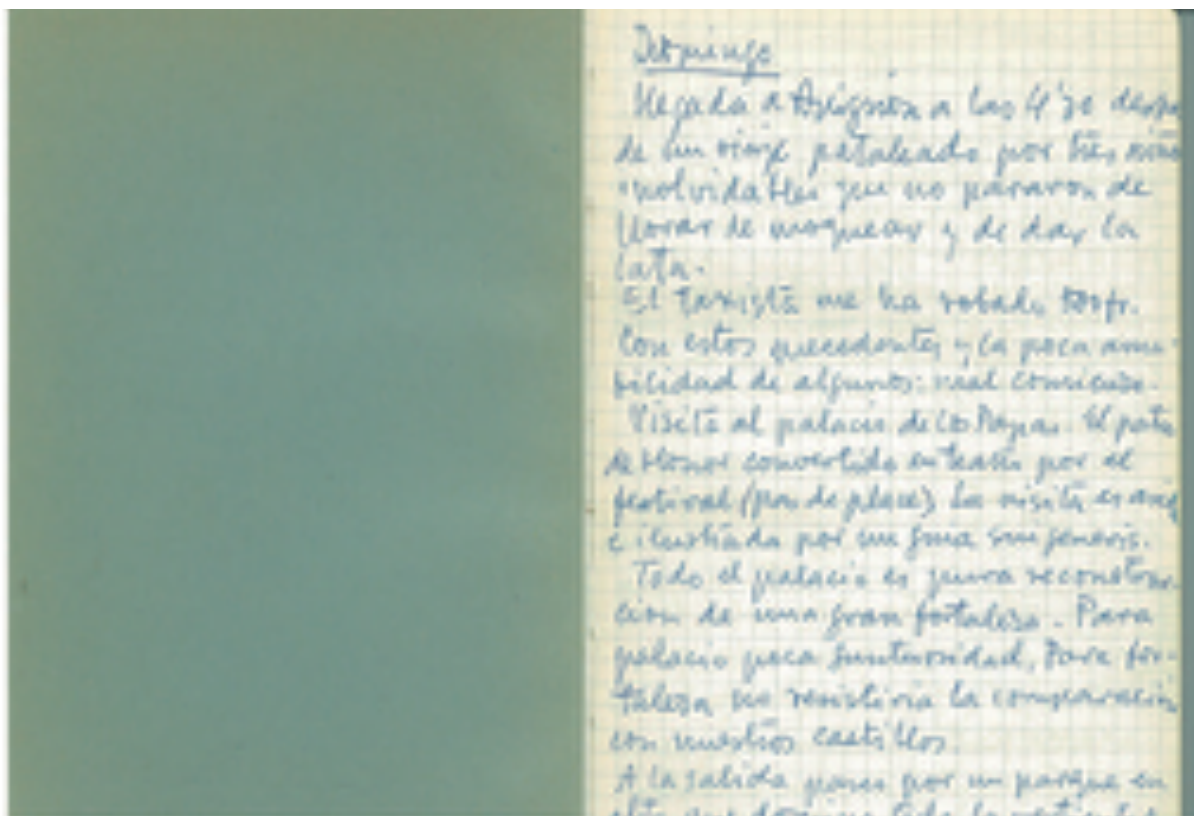 Domingo
Llegada a Avignon a las 4'30 despu
de un viaje pataleado por tres niños
inolvidables que no pararon de
llorar de moquear y de dar la
lata.
El taxista me ha robado fr.
Con estos precedentes y la poca ama-
bilidad de algunos: mal comienzo.
Visita al palacio de los Papas. El patio
de Honor convertido en teatro por el
festival (pas de place) La visita es
e ilustrada por un guia sui generis.
Todo el palacio es pura reconstruc-
cion de una gran fortaleza. Para
palacio poca suntuosidad, Para for-
taleza no resistiria la comparación
con nuestros castillos.
A la salida paseo por un parque en
alto que toda la